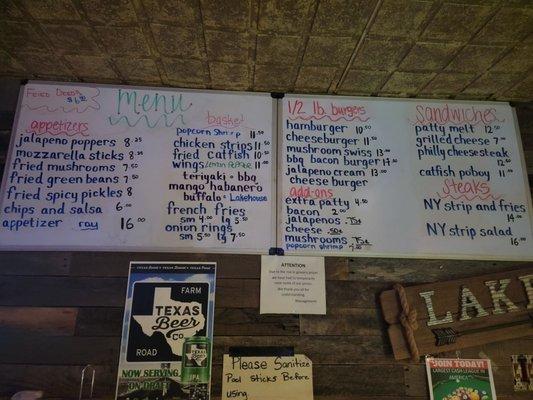 Fried Oreos
Menu
appetizers
jalapeno poppers 8.25
mozzarella sticks 8.25
fried mushrooms 7.50
fried green beans 7.50
fried spicy pickles 8
chips and salsa 6.00
appetizer ray 16.00
basket
popcorn shrimp 11.50
chicken strips 11.50
fried catfish 10.50
wings 11.00
teriyaki • bbq
mango habanero
buffalo • Lakehouse
french fries
sm 4.00 lg 5.50
onion rings
sm 5.50 lg 7.50
1/2 lb. burgers
hamburger 10.50
cheeseburger 11.50
mushroom swiss 13.00
bbq bacon burger 14.00
jalapeno cream 13.00
cheese burger
add-ons
extra patty 4.50
bacon 2.00
jalapenos .75¢
cheese .50¢
mushrooms .75¢
popcorn shrimp
sandwiches
patty melt 12.50
grilled cheese 7.00
philly cheesesteak
12.50
catfish poboy 11.00
steaks
NY strip and fries
14.00
NY strip salad
16.00
ATTENTION
Management
FARM
TEXAS
Beer
CO
ROAD
NOW SERVING
ON DRAFT
IPA
Please Sanitize
Pool Sticks Before
using
LAKE
JOIN TODAY!
LARGEST CASH LEAGUE
IN AMERICA